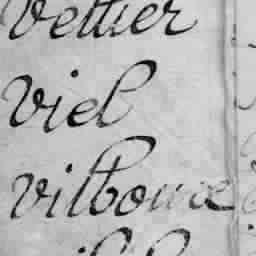 Vettier
Viel
Vilbouuce